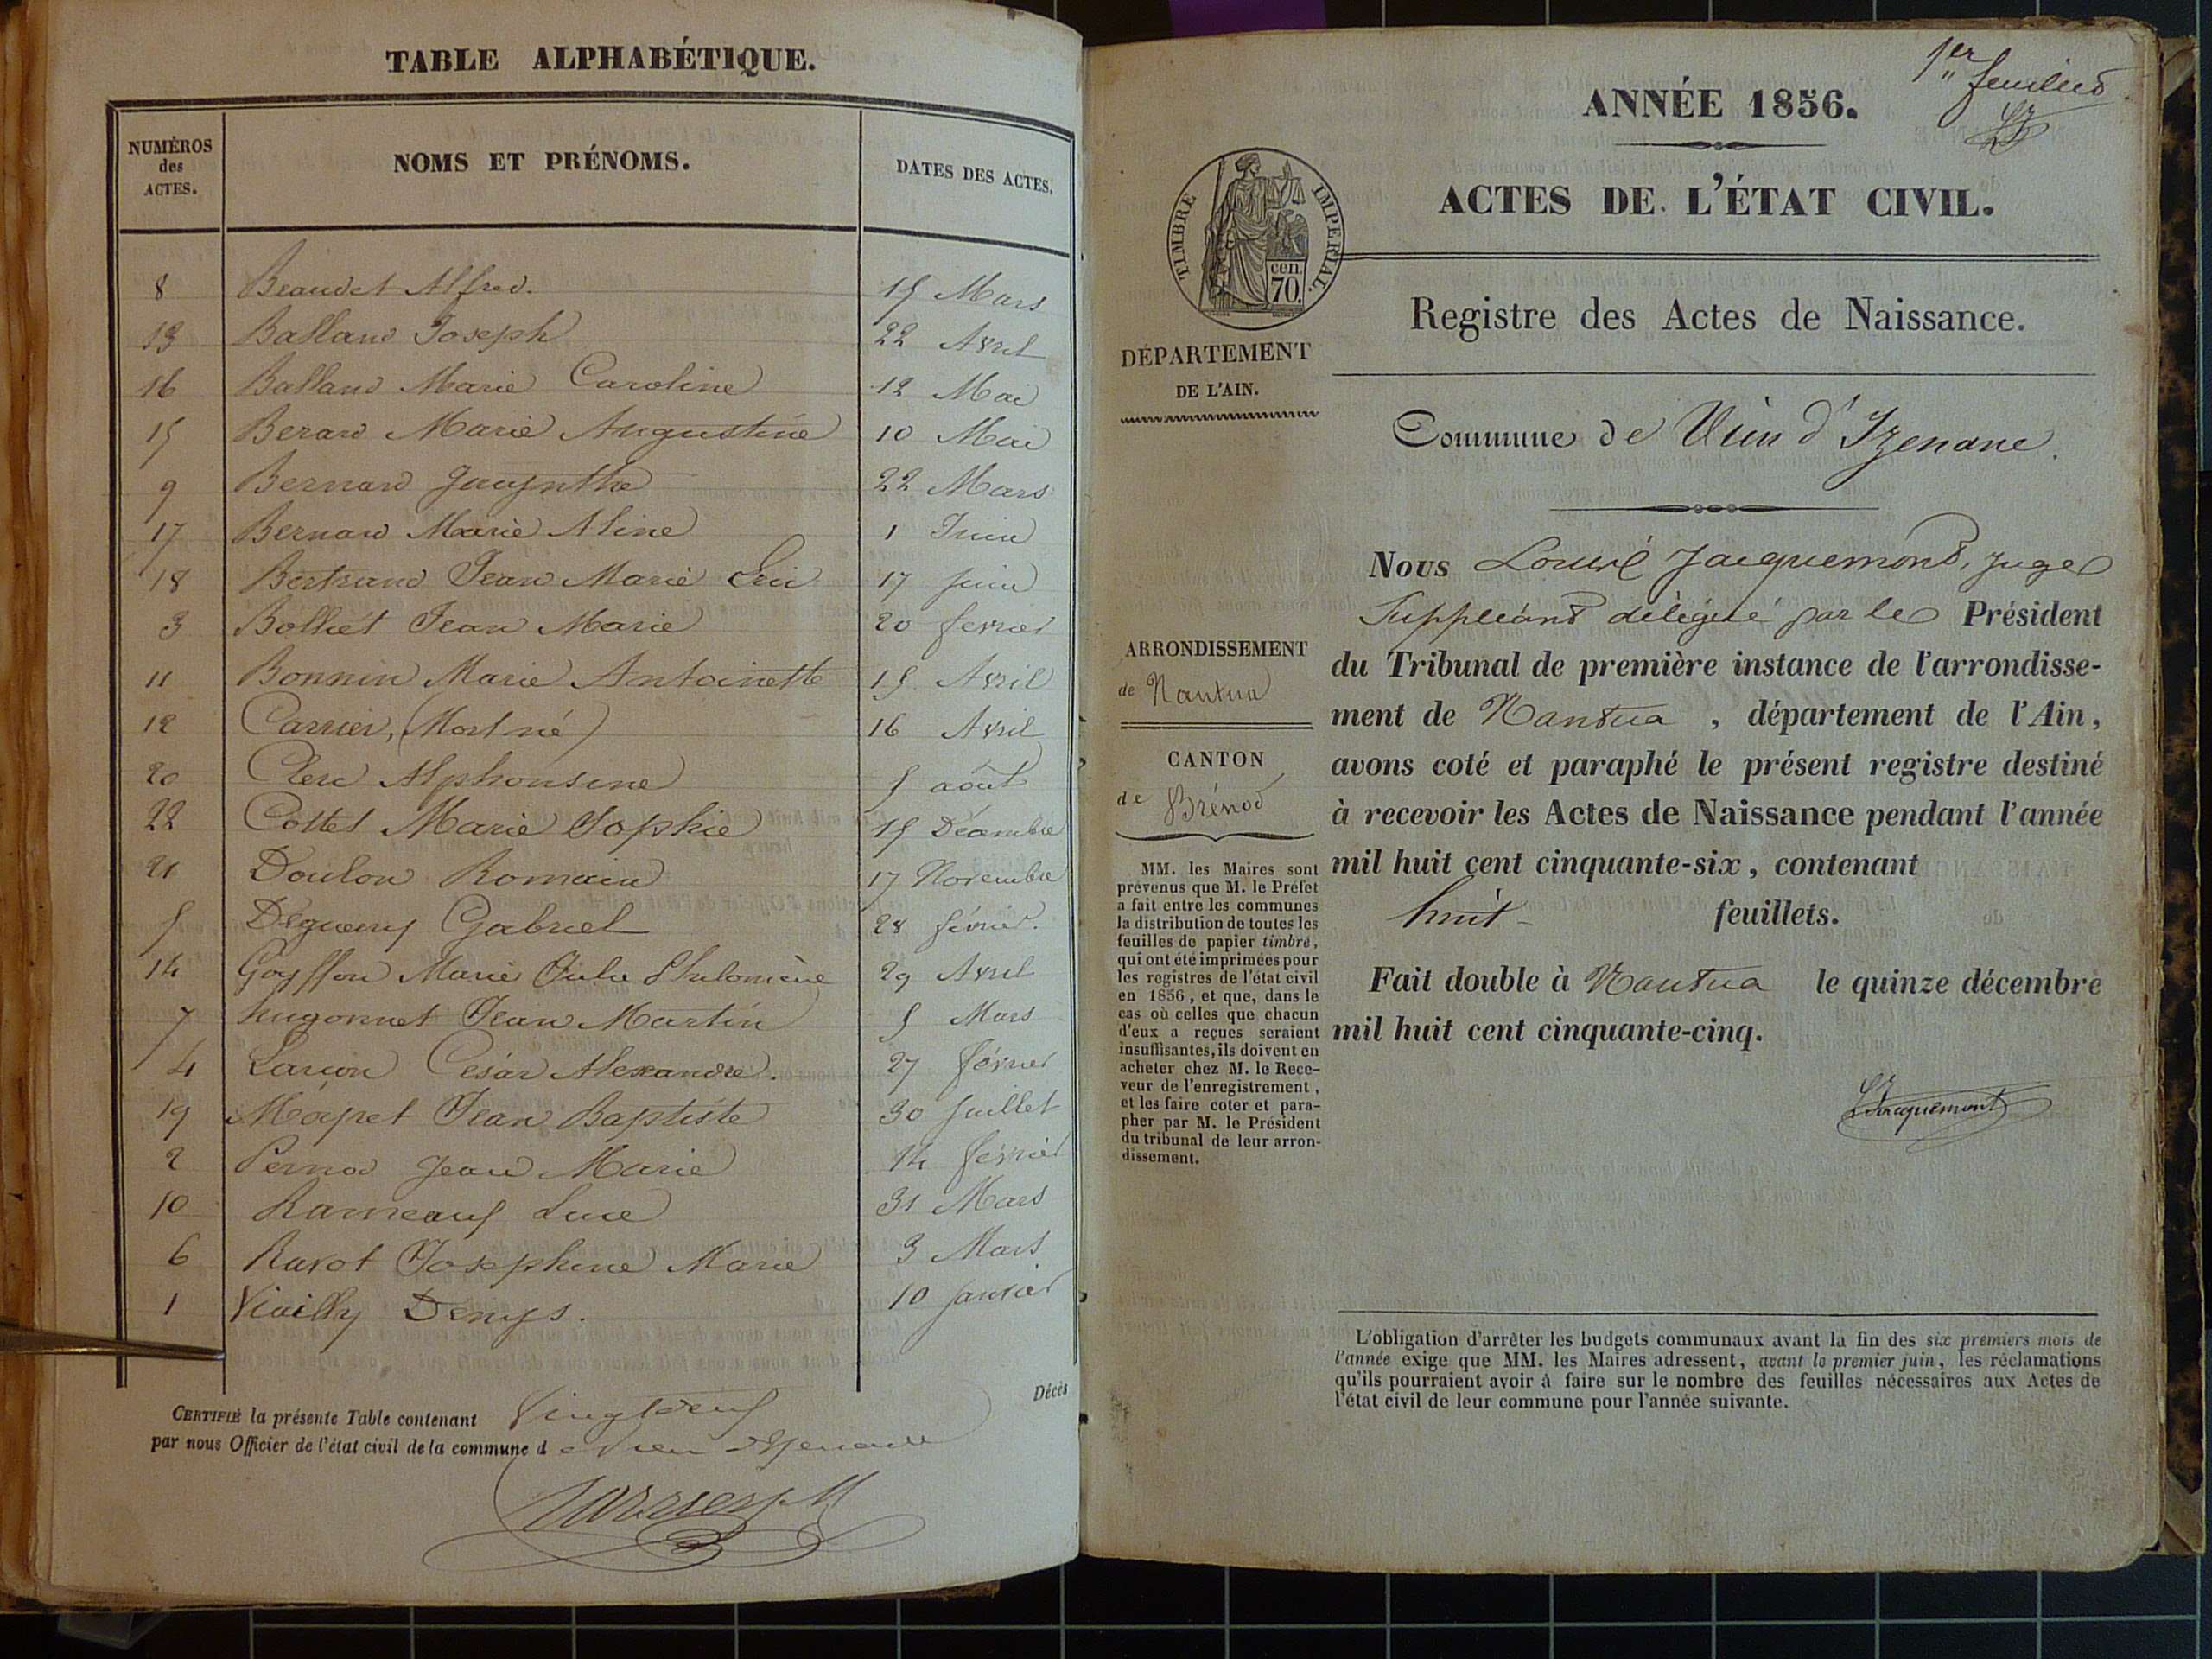 TABLE ALPHABÉTIQUE.
NUMÉROS des ACTES.
NOMS ET PRÉNOMS.
DATES DES ACTES.
8 Beaudet Alfred. 15 Mars
13 Balland Joseph 22 Avril
16 Balland Marie Caroline 12 Mai
15 Berard Marie Augustine 10 Mai
9 Bernard Jacynthe 22 Mars
17 Bernard Marie Aline 1 Juin
18 Bertrand Jean Marie 17 Juin
3 Bolliet Jean Marie 20 fevrier
11 Bonnin Marie Antoinette 15 Avril
12 Carrier, (Mort né) 16 Avril
20 Clerc Alphonsine 5 août
22 Cottet Marie Sophie 15 Décembre
21 Doulon Romain 17 Novembre
5 Gabriel 28 février.
14 Goyffon Marie Julie Philomène 29 Avril
7 hugonnet Jean Martin 5 Mars
4 Larçon César Alexandre. 27 février
19 Jean Baptiste 30 Juillet
2 Pernod Jean Marie 14 février
10 Rameaux Luce 31 Mars
6 Ravot Joséphine Marie 3 Mars
1 Viailly Denys. 10 Janvier
Décès
CERTIFIÉ la présente Table contenant
par nous Officier de l'état civil de la commune d e Vieu d'Izenave
1er feuillet
ANNÉE 1856.
ACTES DE L'ÉTAT CIVIL.
TIMBRE IMPERIAL.
cen. 70.
Registre des Actes de Naissance.
DÉPARTEMENT
DE L'AIN.
Commune de Vieu d'Izenave.
Nous Louis Jacquemond, Juge
Suppléant délégué par le Président
du Tribunal de première instance de l'arrondisse-
ment de Nantua, département de l'Ain,
avons coté et paraphé le présent registre destiné
à recevoir les Actes de Naissance pendant l'année
mil huit cent cinquante-six, contenant
huit feuillets.
Fait double à Nantua le quinze décembre
mil huit cent cinquante-cinq.
Jacquemont
ARRONDISSEMENT
de Nantua
CANTON
de Brénod
MM. les Maires sont
prévenus que M. le Préfet
a fait entre les communes
la distribution de toutes les
feuilles de papier timbré,
qui ont été imprimées pour
les registres de l'état civil
en 1856, et que, dans le
cas où celles que chacun
d'eux a reçues seraient
insuffisantes, ils doivent en
acheter chez M. le Rece-
veur de l'enregistrement,
et les faire coter et para-
pher par M. le Président
du tribunal de leur arron-
dissement.
L'obligation d'arrêter les budgets communaux avant la fin des six premiers mois de
l'année exige que MM. les Maires adressent, avant le premier juin, les réclamations
qu'ils pourraient avoir à faire sur le nombre des feuilles nécessaires aux Actes de
l'état civil de leur commune pour l'année suivante.